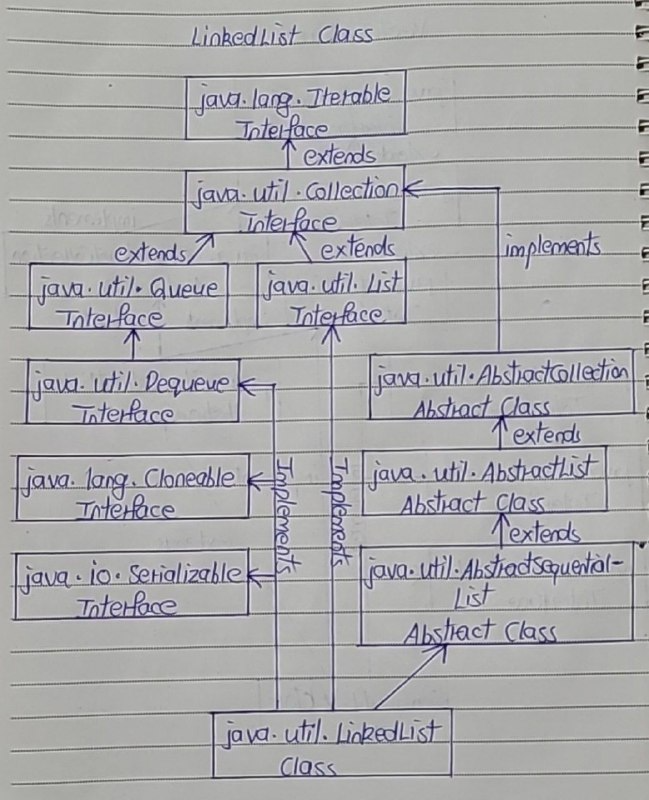 LinkedList Class
java.lang.Iterable
Interface
extends
java.util.Collection
Interface
extends
extends
implements
java.util.Queue
Interface
java.util.List
Interface
java.util.Dequeue
Interface
java.util.AbstractCollection
Abstract Class
extends
java.lang.Cloneable
Interface
Implements
Implements
java.util.AbstractList
Abstract Class
extends
java.io.Serializable
Interface
java.util.Abstractsequential-
List
Abstract Class
java.util.LinkedList
Class